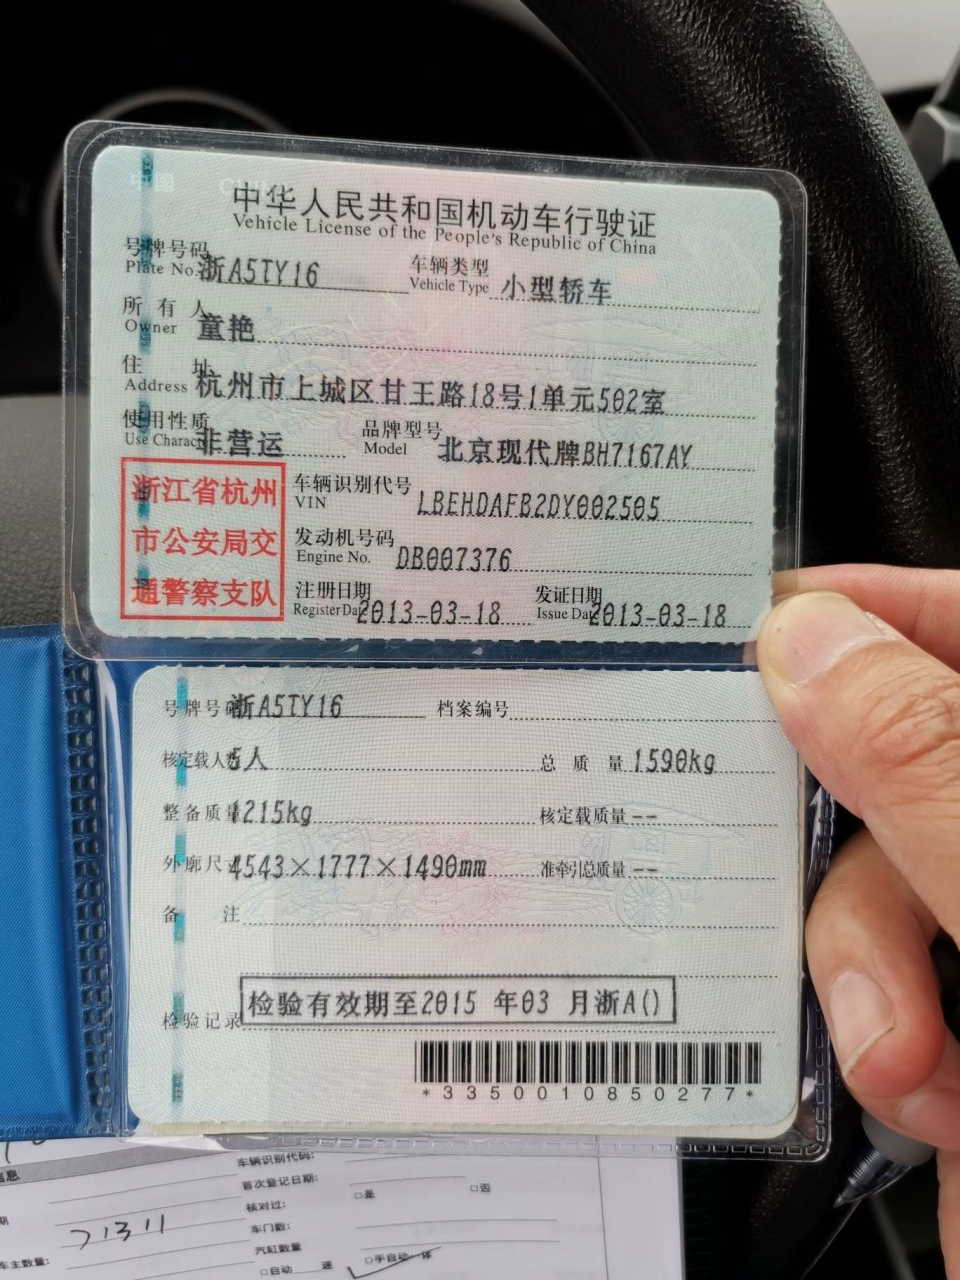 中华人民共和国机动车行驶证
Vehicle License of the People's Republic of China
号牌号码 浙A5TY16 车辆类型 小型轿车
Plate No. Vehicle Type
所有人 童艳
Owner
住址 杭州市上城区甘王路18号1单元502室
Address
使用性质 非营运 品牌型号 北京现代牌BH7167AY
Use Character Model
浙江省杭州
市公安局交
通警察支队
车辆识别代号 LBEHDAFB2DY002505
VIN
发动机号码 DB007376
Engine No.
注册日期 2013-03-18 发证日期 2013-03-18
Register Date Issue Date
号牌号码 浙A5TY16 档案编号
核定载人数 5人 总质量 1590kg
整备质量 1215kg 核定载质量 --
外廓尺寸 4543×1777×1490mm 准牵引总质量 --
备注
检验有效期至2015 年03 月浙A()
检验记录
*3350010850277*
车辆识别代码:
首次登记日期:
核对过: □是 □否
71311 车门数:
车主数量: 汽缸数量
□自动 速 □手自动一体